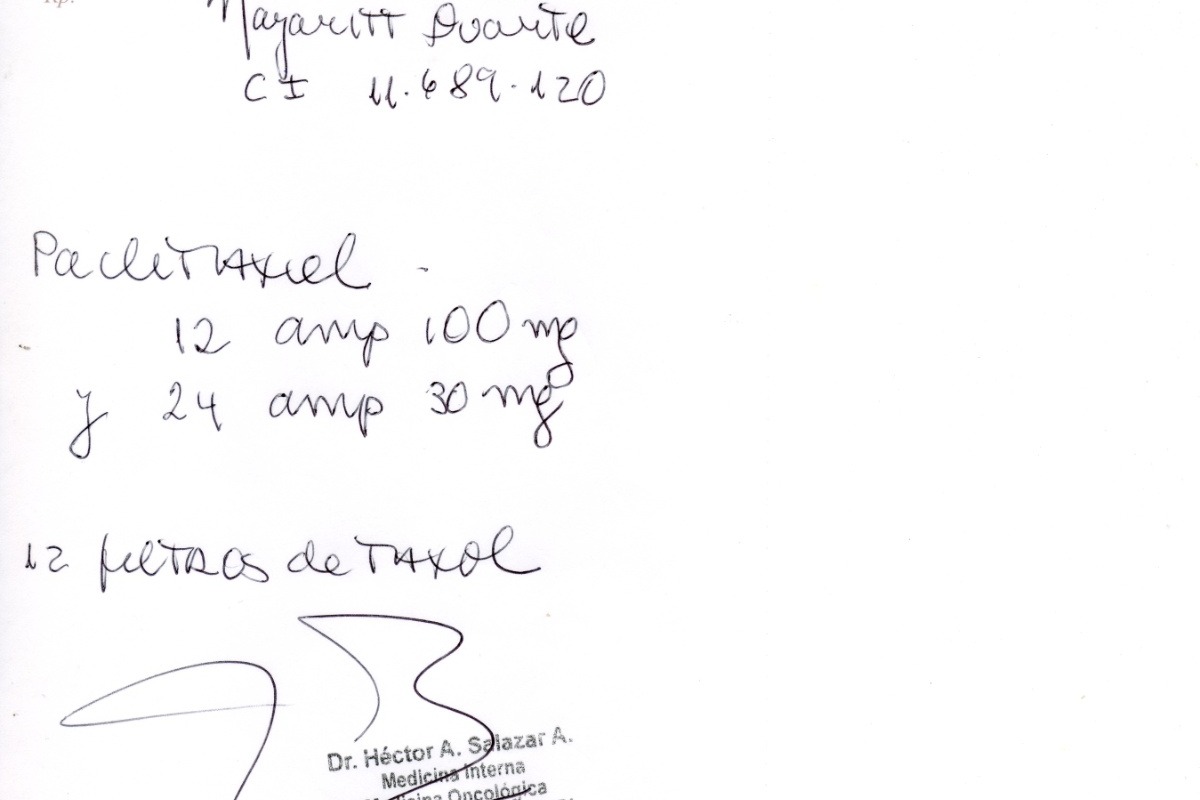 Rp.
Nayaritt Duarte
CI 11.689.120
Paclitaxel -
12 amp 100 mg
y 24 amp 30 mg
12 filtros de TAXOL
Dr. Héctor A. Salazar A.
Medicina Interna
Medicina Oncológica